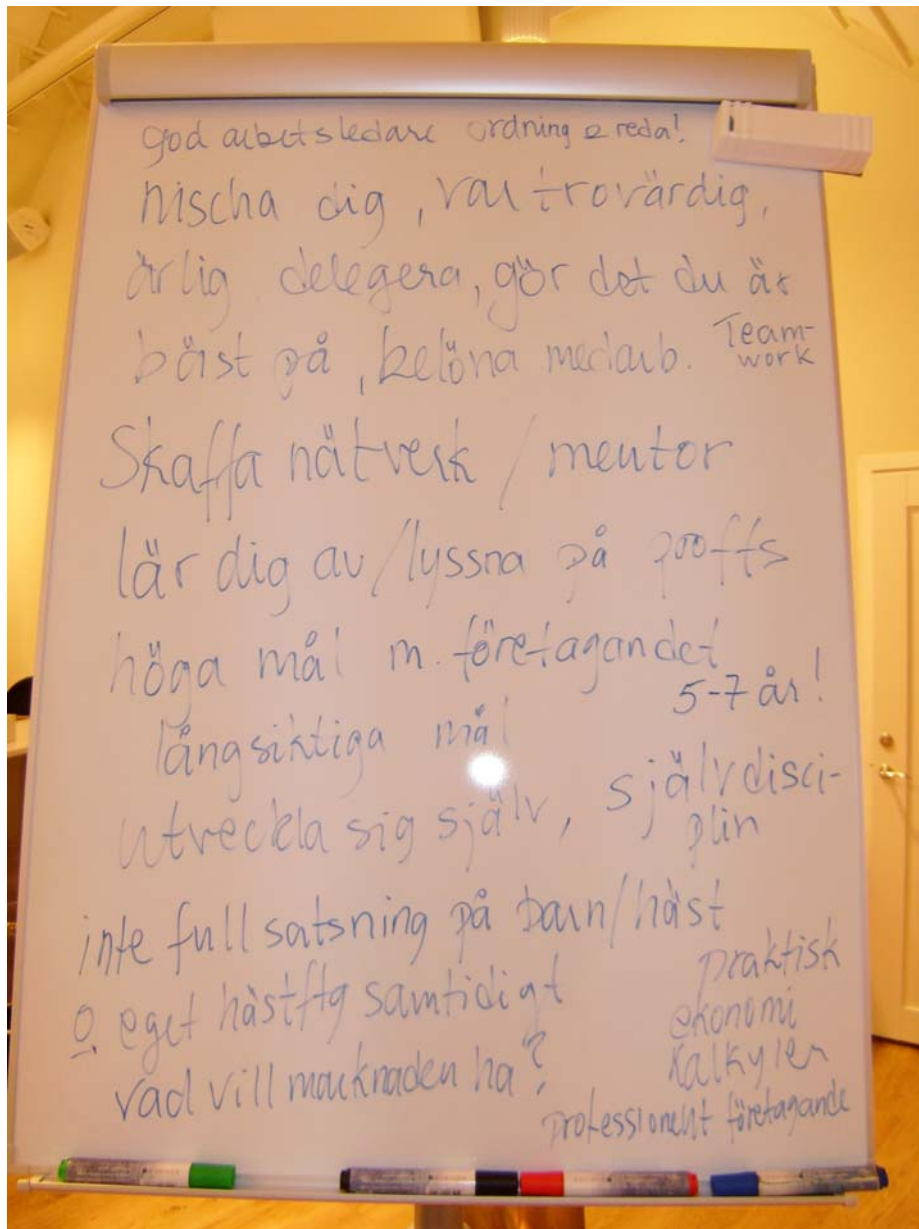 god arbetsledare ordning o reda!
nischa dig, var trovärdig,
ärlig, delegera, gör det du är
bäst på, belöna medarb. Team-
work
Skaffa nätverk / mentor
lär dig av/lyssna på proffs
höga mål m. företagandet
5-7 år!
långsiktiga mål
utveckla sig själv, självdisci-
plin
inte full satsning på barn/häst
o eget hästftg samtidigt
vad vill marknaden ha?
praktisk
ekonomi
kalkyler
professionellt företagande